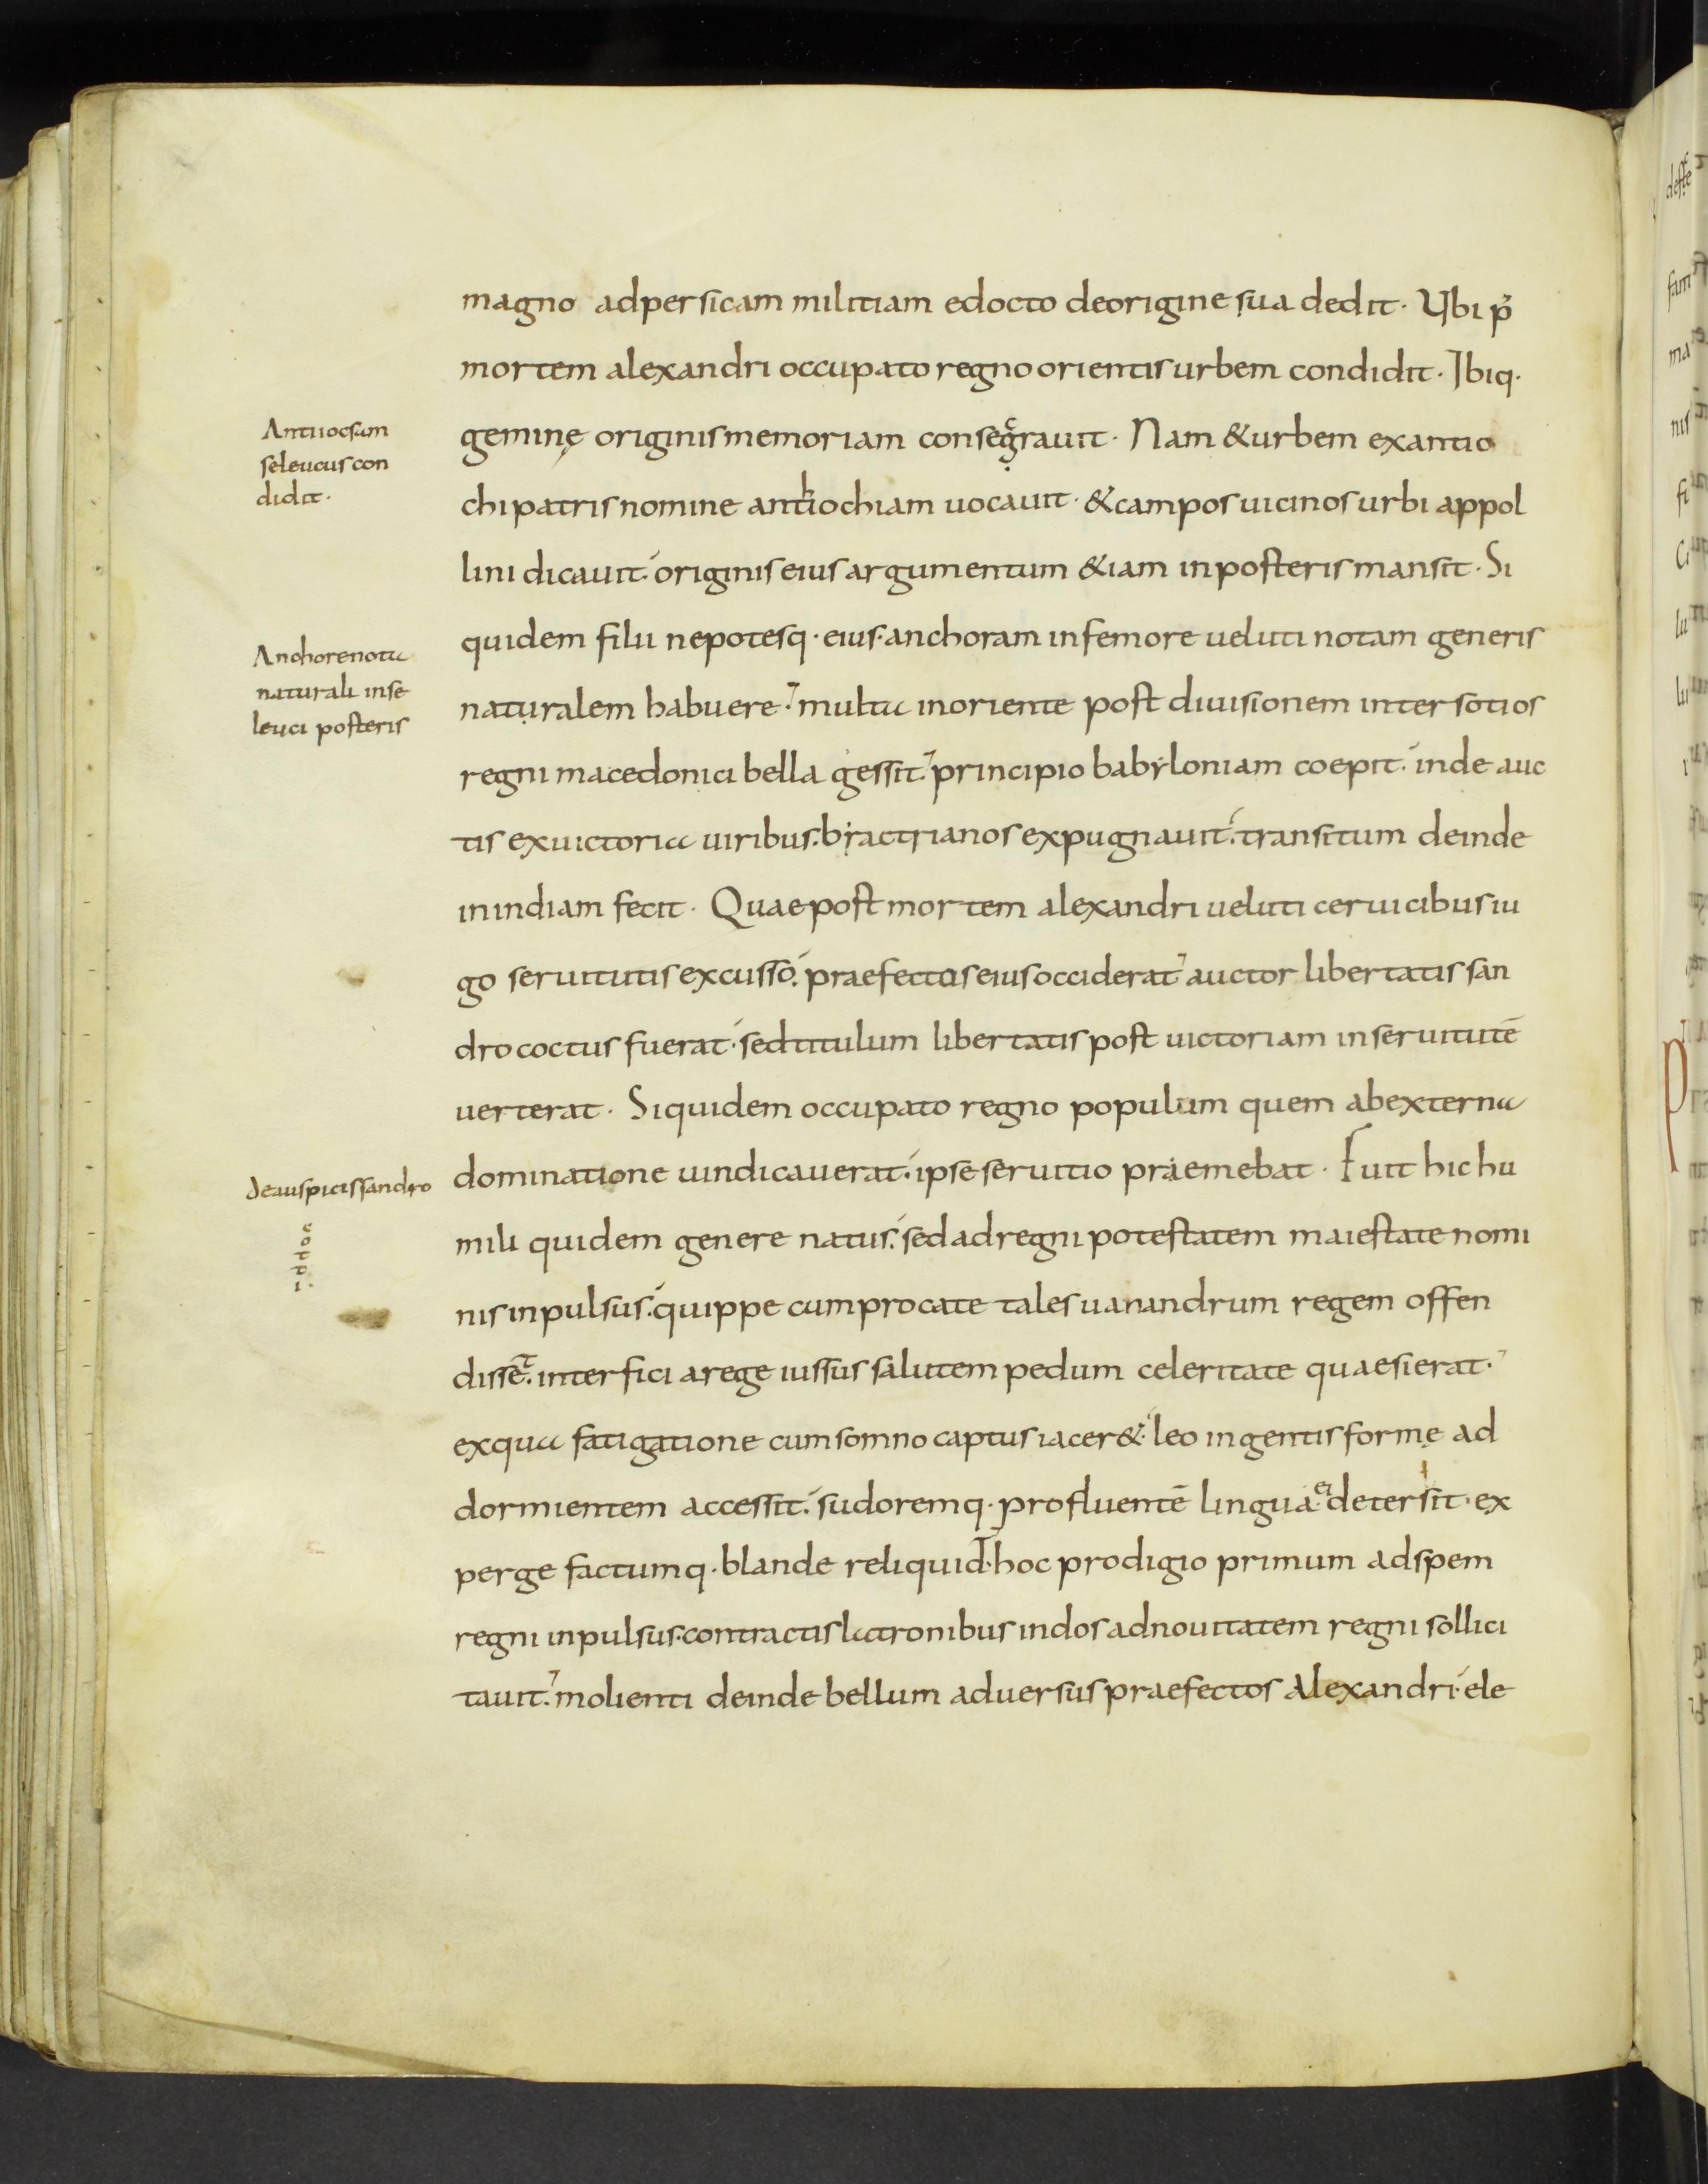 magno ad persicam militiam edocto de origine sua dedit. Ubi p̄
mortem alexandri occupato regno orientis urbem condidit. Ibiq.
geminę originis memoriam consegcrauit. Nam & urbem ex antio
chi patris nomine anthiochiam uocauit. & campos uicinos urbi appol
lini dicauit. originis eius argumentum &iam in posteris mansit. Si
quidem filii nepotesq. eius. anchoram in femore ueluti notam generis
naturalem habuere. multa in oriente post diuisionem inter sotios
regni macedonici bella gessit. principio babyloniam coepit. inde auc
tis ex uictoria uiribus. bractrianos expugnauit. transitum deinde
in indiam fecit. Quae post mortem alexandri ueluti ceruicibus iu
go seruitutis excusso. praefectos eius occiderat auctor libertatis san
drococtus fuerat. sed titulum libertatis post uictoriam in seruitutē
uerterat. Siquidem occupato regno populum quem ab externa
dominatione uindicauerat. ipse seruitio praemebat. Fuit hic hu
mili quidem genere natus. sed ad regni potestatem maiestate nomi
nis inpulsus. quippe cum procatetales uanandrum regem offen
disset. interfici a rege iussus salutem pedum celeritate quaesierat.
ex qua fatigatione cum somno captus iacer&. leo ingentis formę ad
dormientem accessit. sudoremq. profluentē lingua ei detersit. ex
perge factumq. blande reliquid. hoc prodigio primum ad spem
regni inpulsus. contractis latronibus indos ad nouitatem regni sollici
tauit. molienti deinde bellum aduersus praefectos Alexandri. ele
Antiiocsam
seleucus con
didit.
Anchore nota
naturali in se
leuci posteris
de auspiciis sandro
cotti.